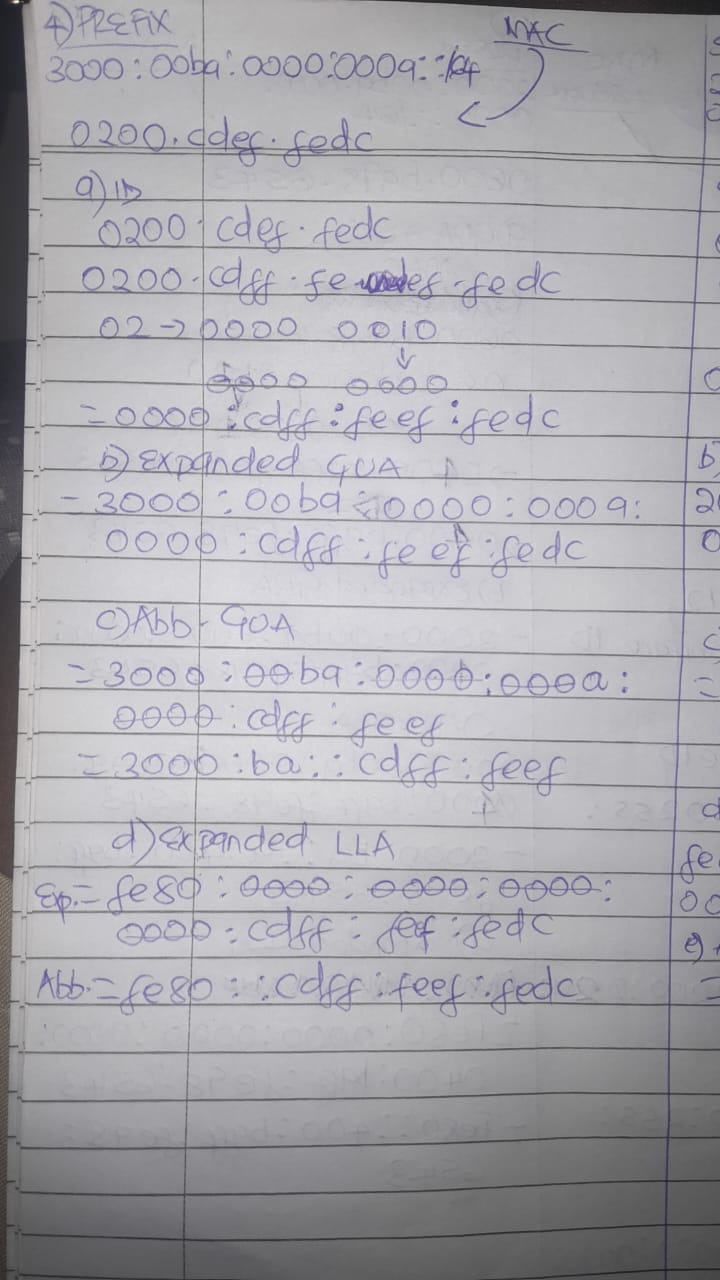 4) PREFIX
MAC
3000:00ba:0000:000a::/64
0200.cdef.fedc
a) ID
0200.cdef.fedc
0200.cdff.fe ef.fedc
02 → 0000 0010
↓
0000 0000
= 0000:cdff:feef:fedc
b) Expanded GUA
- 3000:00ba:0000:000a:
0000:cdff:feef:fedc
c) Abb - GUA
= 3000:00ba:0000:000a:
0000:cdff:feef
= 3000:ba::cdff:feef
d) Expanded LLA
Exp. = fe80:0000:0000:0000:
0000:cdff:feef:fedc
Abb. = fe80::cdff:feef:fedc